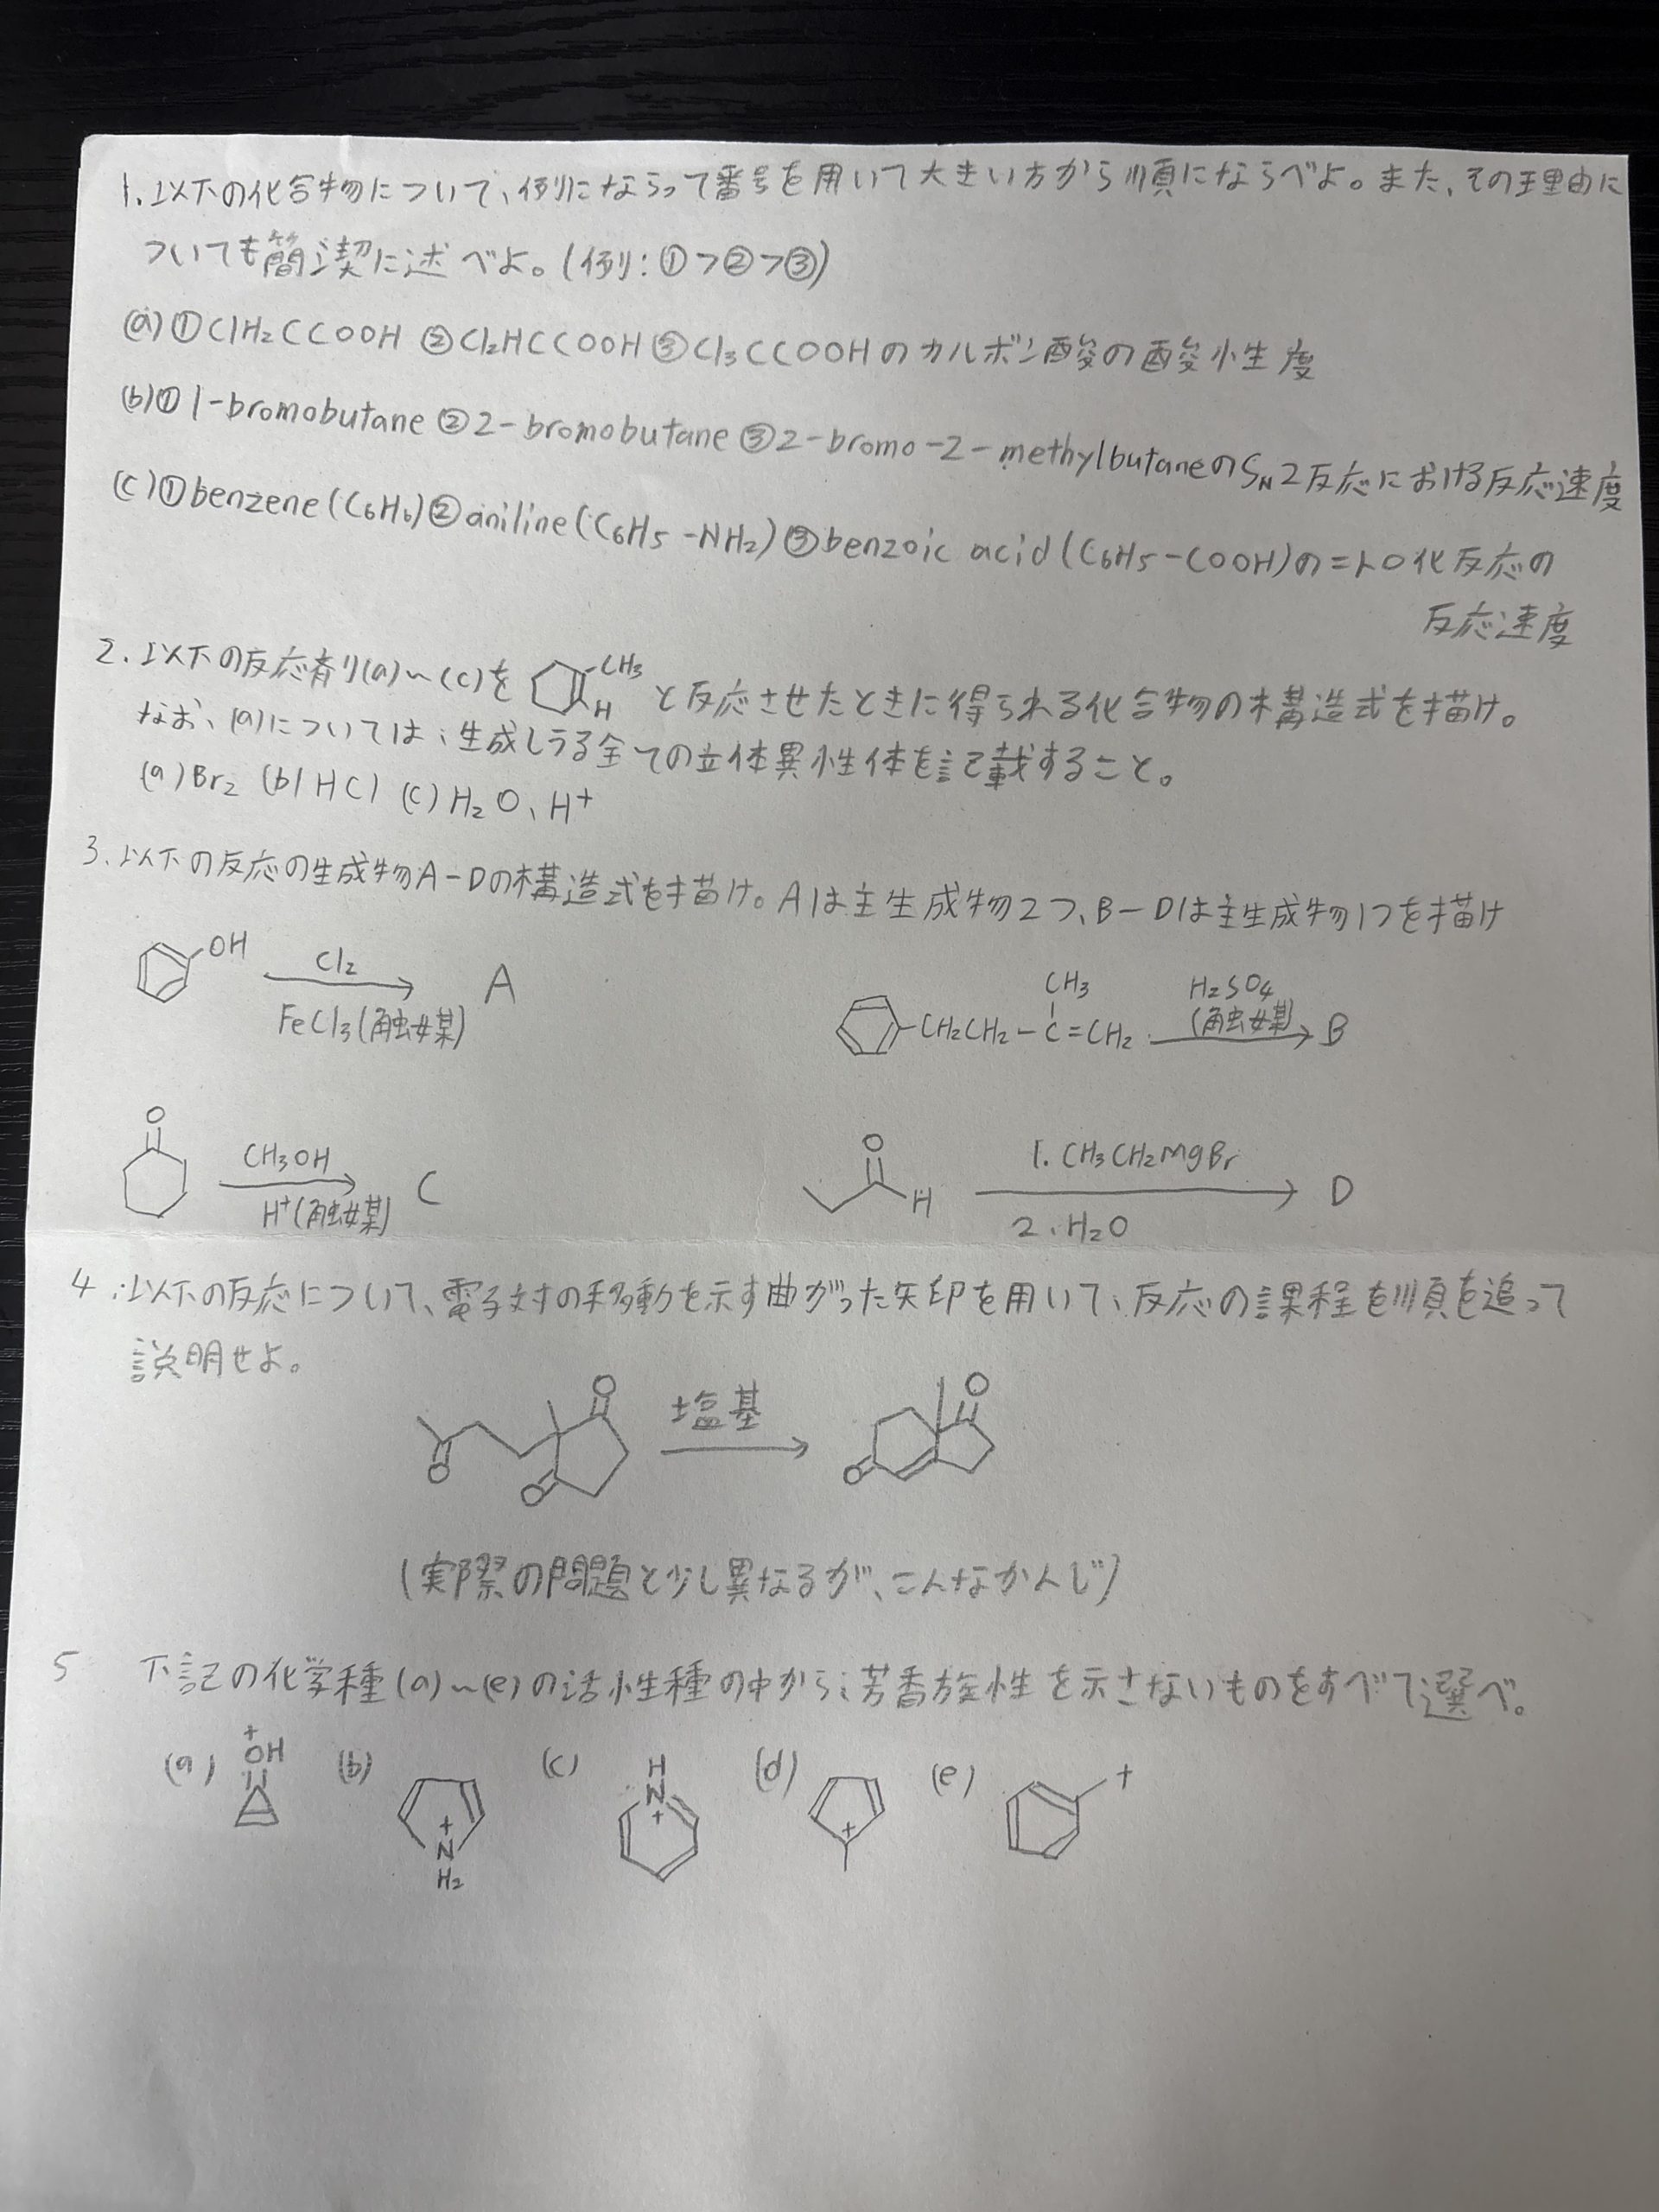 1.以下の化合物について、例にならって番号を用いて大きい方から順にならべよ。また、その理由に
ついても簡潔に述べよ。(例:①>②>③)
(a)①ClH₂CCOOH ②Cl₂HCCOOH ③Cl₃CCOOHのカルボン酸の酸性度
(b)①1-bromobutane ②2-bromobutane ③2-bromo-2-methylbutaneのSN2反応における反応速度
(c)①benzene(C₆H₆)②aniline(C₆H₅-NH₂)③benzoic acid(C₆H₅-COOH)のニトロ化反応の
反応速度
2.以下の反応剤(a)~(c)を CH₃ H と反応させたときに得られる化合物の構造式を描け。
なお、(a)については、生成しうる全ての立体異性体を記載すること。
(a)Br₂ (b)HCl (c)H₂O、H⁺
3.以下の反応の生成物A-Dの構造式を描け。Aは主生成物2つ、B-Dは主生成物1つを描け
OH Cl₂ FeCl₃(触媒) A
CH₂CH₂-C=CH₂ CH₃ H₂SO₄ (触媒) B
O CH₃OH H⁺(触媒) C
O H 1. CH₃CH₂MgBr 2. H₂O D
4.以下の反応について、電子対の移動を示す曲がった矢印を用いて、反応の課程を順を追って
説明せよ。
O O O 塩基 O O
(実際の問題と少し異なるが、こんなかんじ)
5 下記の化学種(a)~(e)の活性種の中から、芳香族性を示さないものをすべて選べ。
(a) +OH (b) +N H₂ (c) H N + (d) + (e) +